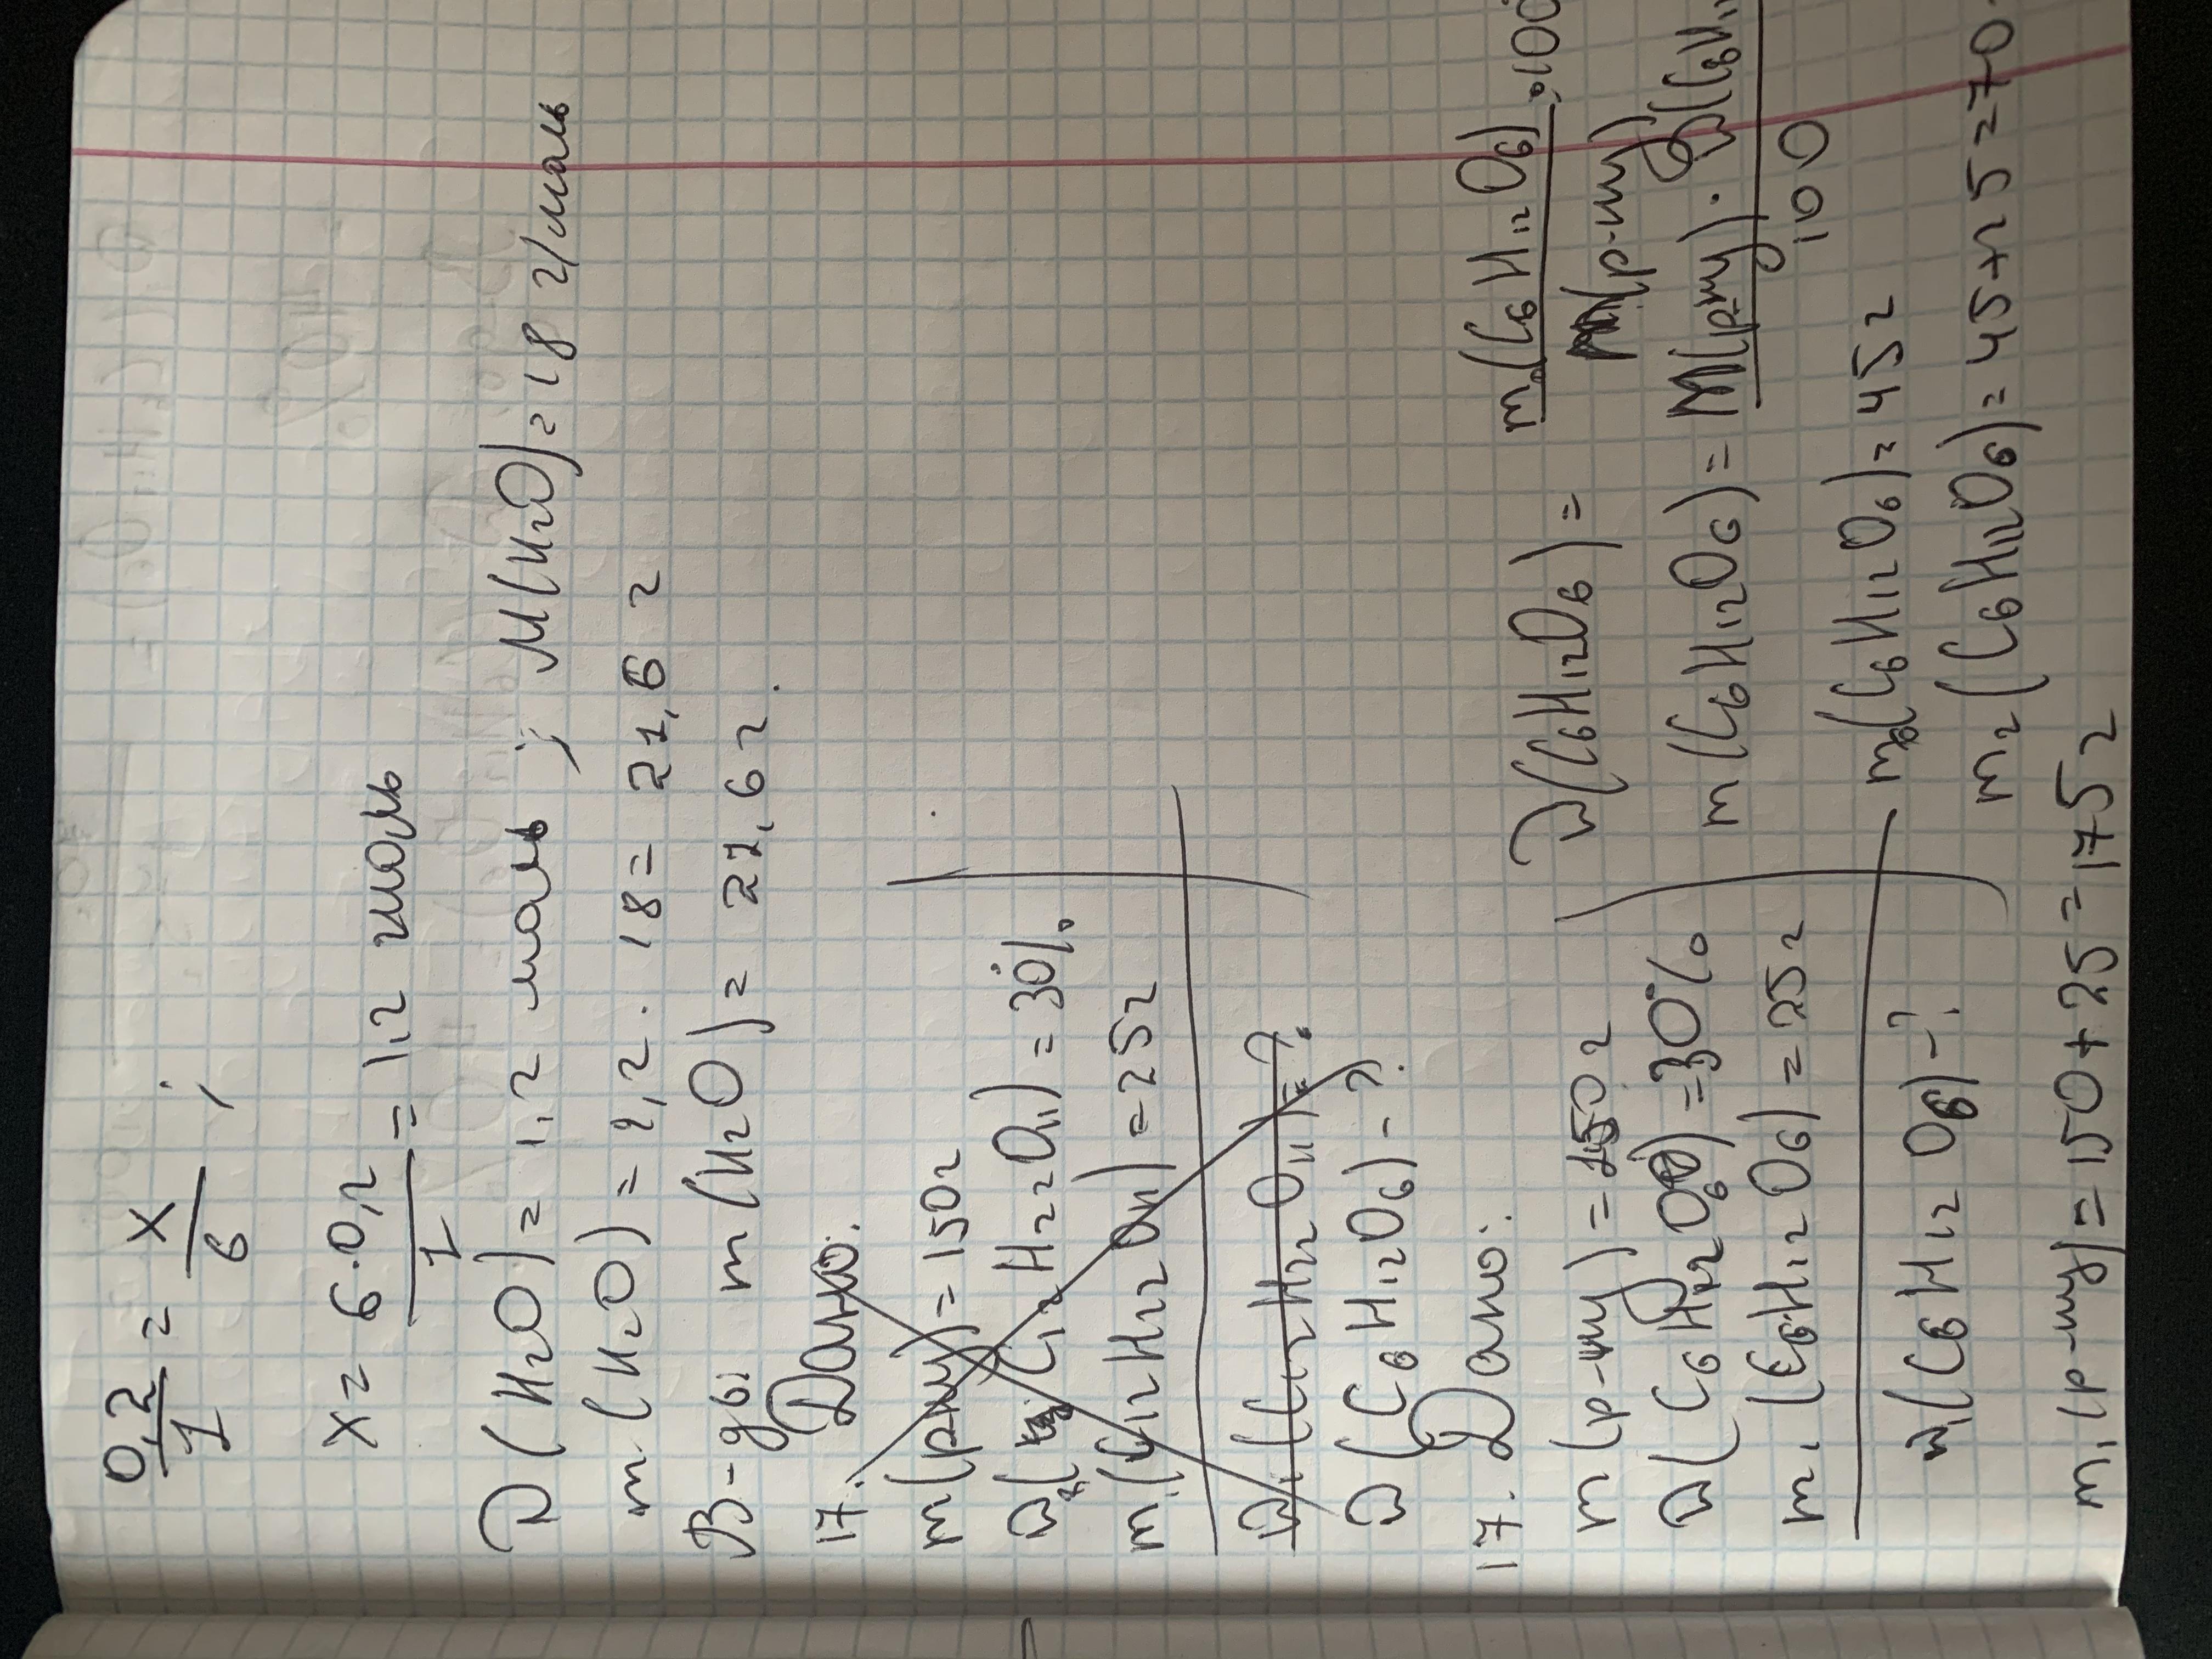 0,2/1 = x/6 ;
x = 6·0,2/1 = 1,2 моль
ν(H₂O) = 1,2 моль ; M(H₂O) = 18 г/моль
m(H₂O) = 1,2 · 18 = 21,6 г
В-дь: m(H₂O) = 21,6 г.
17. Дано:
m(р-ну) = 150г
W(C₁₂H₂₂O₁₁) = 30%
m₁(C₁₂H₂₂O₁₁) = 25г
W₁(C₁₂H₂₂O₁₁) = ?
W(C₆H₁₂O₆) - ?
17. Дано:
m(р-ну) = 150г
W(C₆H₁₂O₆) = 30%
m₁(C₆H₁₂O₆) = 25г
W₁(C₆H₁₂O₆) - ?
W(C₆H₁₂O₆) = m(C₆H₁₂O₆)/m(р-ну) · 100
m(C₆H₁₂O₆) = m(р-ну) · W(C₆H₁₂/100
m(C₆H₁₂O₆) = 45г
m₂(C₆H₁₂O₆) = 45+25 = 70
m₁(р-ну) = 150+25 = 175г